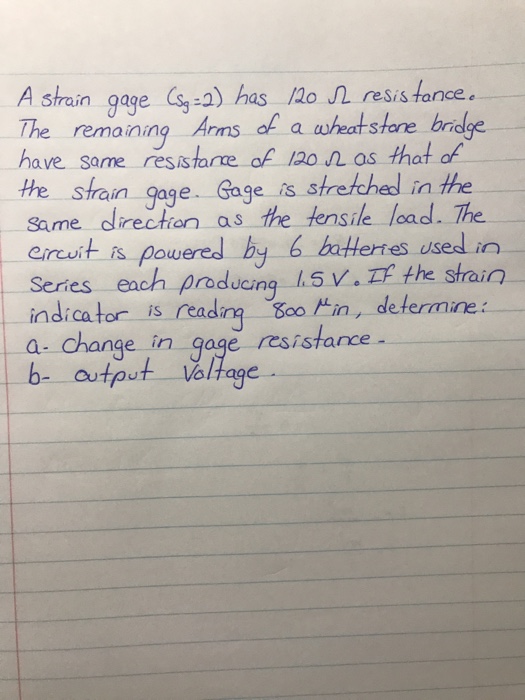 A strain gage (Sg=2) has 120 Ω resistance.
The remaining Arms of a wheatstone bridge
have same resistance of 120 Ω as that of
the strain gage. Gage is stretched in the
same direction as the tensile load. The
circuit is powered by 6 batteries used in
series each producing 1.5 V. If the strain
indicator is reading 800 μin, determine:
a- change in gage resistance-
b- output voltage.